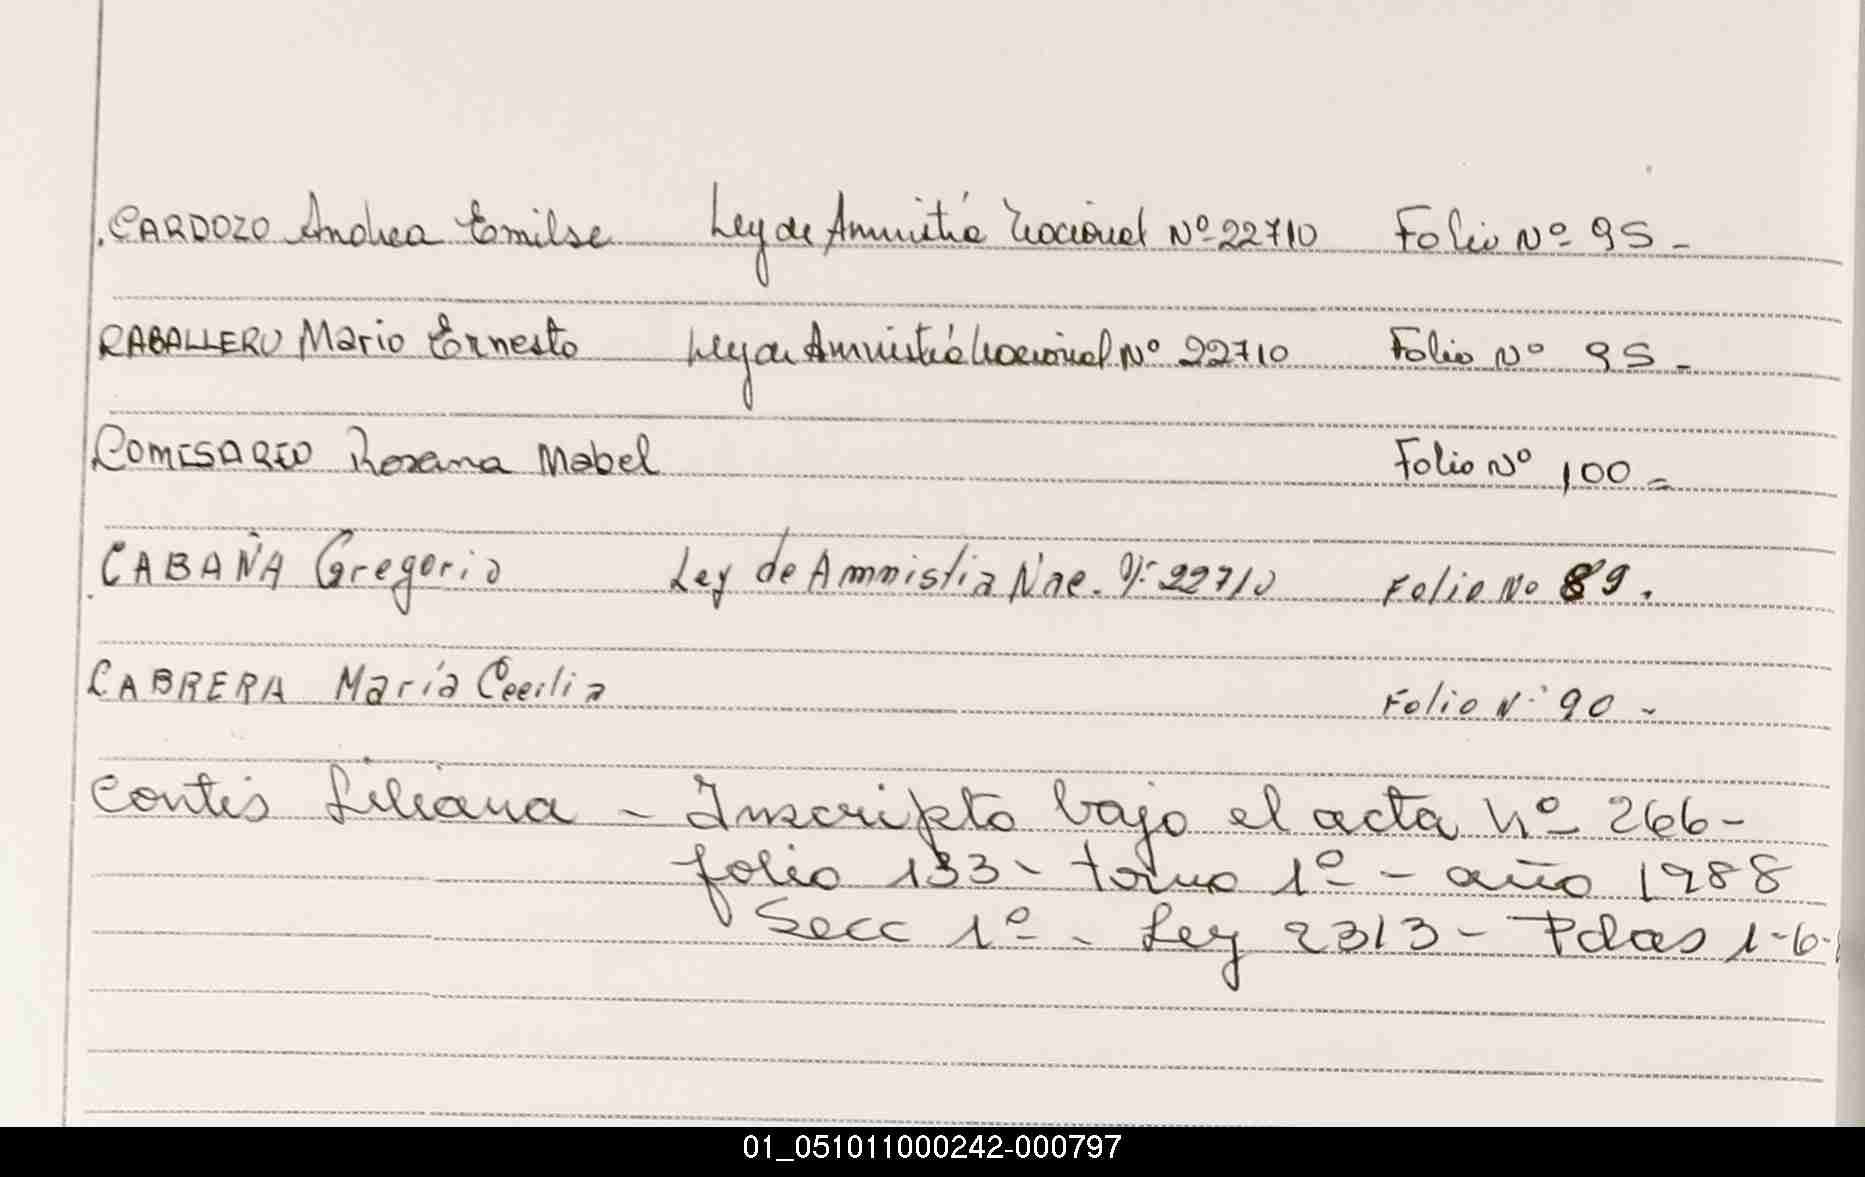 CARDOZO Andrea Emilse Ley de Amnistía Nacional Nº 22710 Folio Nº 95 -
CABALLERO Mario Ernesto Ley de Amnistía Nacional Nº 22710 Folio Nº 95 -
COMISARIO Roxana Mabel Folio Nº 100 =
CABAÑA Gregorio Ley de Ammistia Nac. Nº 22710 Folio No 89.
CABRERA María Cecilia Folio Nº 90 -
Contis Liliana - Inscripto bajo el acta Nº 266 -
folio 133 - tomo 1º - año 1988
Secc 1º - Ley 2313 - Pdas 1-6-
01_051011000242-000797